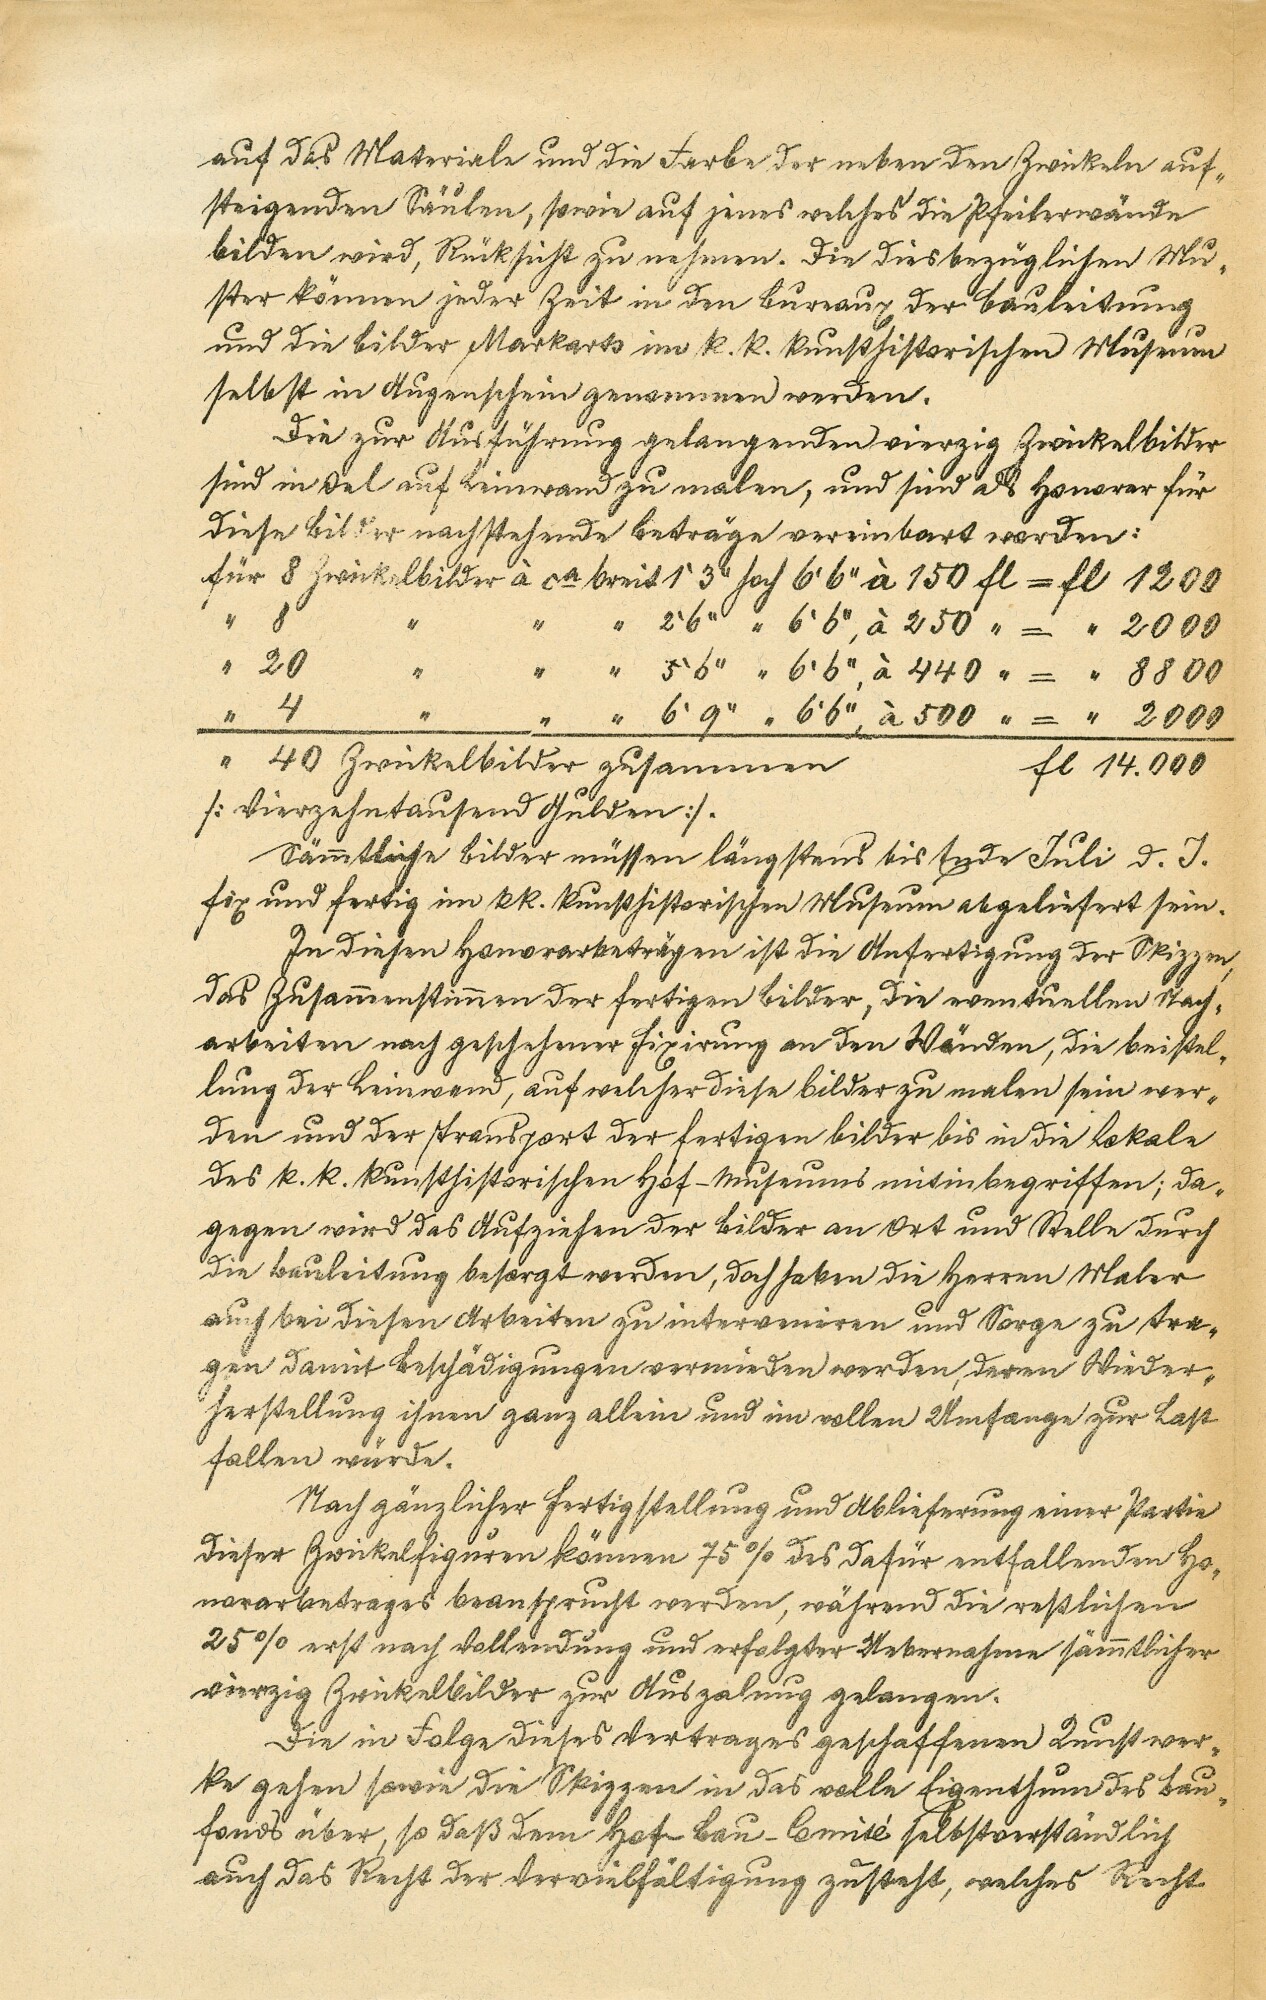 auf das Materiale und die Farbe der neben den Zwickeln auf„
steigenden Säulen, sowie auf jenes welches die Pfeilerwände
bilden wird, Rücksicht zu nehmen. Die diesbezüglichen Mu„
ster können jeder Zeit in den Bureaux der Bauleitung
und die Bilder Markarts im k. k. kunsthistorischen Museum
selbst in Augenschein genommen werden.
Die zur Ausführung gelangenden vierzig Zwickelbilder
sind in Oel auf Leinwand zu malen, und sind als Honorar für
diese Bilder nachstehende Beträge vereinbart worden:
für 8 Zwickelbilder à ca breit 1' 3" hoch 6' 6" à 150 fl = fl 1200
" 8 " " " 2' 6" " 6' 6", à 250 " = " 2000
" 20 " " " 5' 6" " 6' 6", à 440 " = " 8800
" 4 " " " 6' 9" " 6' 6", à 500 " = " 2000
" 40 Zwickelbilder zusammen fl 14.000
/: Vierzehntausend Gulden :/.
Sämtliche Bilder müssen längstens bis Ende Juli d. J.
fix und fertig im kk. kunsthistorischen Museum abgeliefert sein.
In diesen Honorarbeträgen ist die Anfertigung der Skizzen,
das Zusam̅enstim̅en der fertigen Bilder, die eventuellen Nach„
arbeiten nach geschehener Fixirung an den Wänden, die Beistel„
lung der Leinwand, auf welcher diese Bilder zu malen sein wer„
den und der Transport der fertigen Bilder bis in die Lokale
des k. k. kunsthistorischen Hof-Museums mitinbegriffen; da„
gegen wird das Aufziehen der Bilder an Ort und Stelle durch
die Bauleitung besorgt werden, doch haben die Herren Maler
auch bei diesen Arbeiten zu interveniren und Sorge zu tra„
gen damit Beschädigungen vermieden werden, deren Wieder„
herstellung ihnen ganz allein und im vollen Umfange zur Last
fallen würde.
Nach gänzlicher Fertigstellung und Ablieferung einer Partie
dieser Zwickelfiguren können 75% des dafür entfallenden Ho„
norarbetrages beansprucht werden, während die restlichen
25% erst nach Vollendung und erfolgter Uebernahme säm̅tlicher
vierzig Zwickelbilder zur Auszalung gelangen.
Die in Folge dieses Vertrages geschaffenen Kunstwer„
ke gehen sowie die Skizzen in das volle Eigenthum des Bau„
fonds über, so daß dem Hof-Bau-Comité selbstverständlich
auch das Recht der Vervielfältigung zusteht, welches Recht